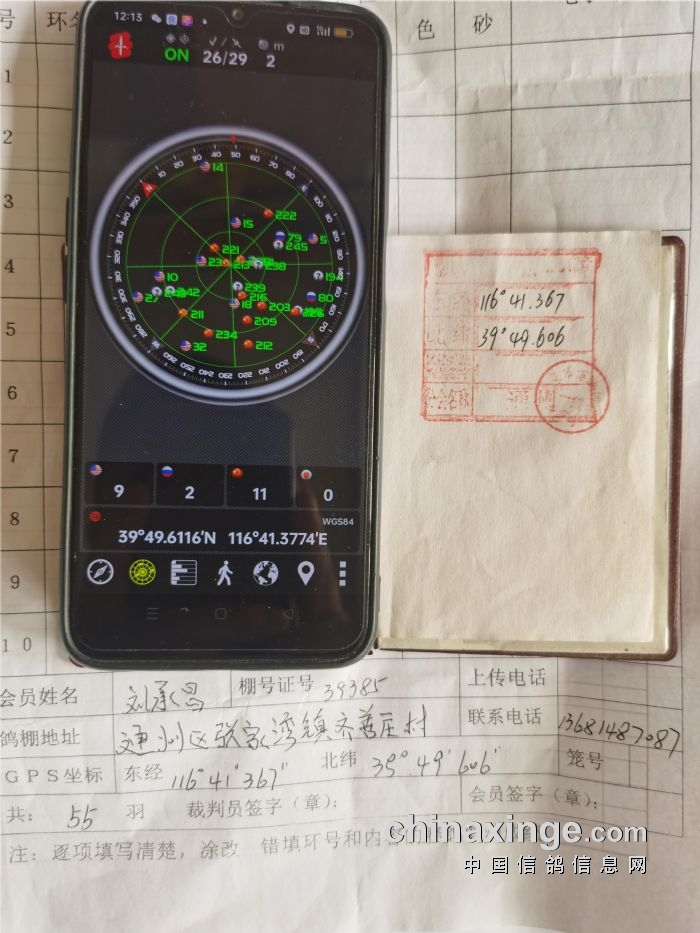 号 环
色 砂
1
2
3
4
5
6
7
8
9
10
12:13
ON 26/29 2 m
14
222
15
79
245
5
221
23
213
238
10
239
194
27
242
216
80
18
203
211
209
234
32
212
9 2 11 0
WGS84
39°49.6116'N 116°41.3774'E
116°41.367
北纬 39°49.606
会员姓名 刘承昌 棚号证号 39385 上传电话
鸽棚地址 通州区张家湾镇齐善庄村 联系电话 13681487087
GPS坐标 东经 116°41'367" 北纬 39°49'606" 笼号
共: 55 羽 裁判员签字（章）: 会员签字（章）:
注: 逐项填写清楚，涂改 错填环号和内
chinaxinge.com
中国信鸽信息网